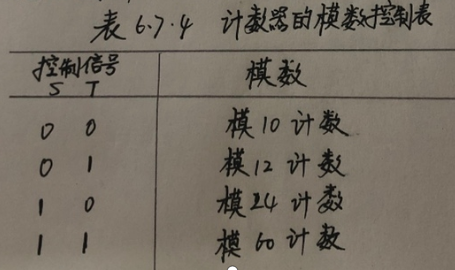 表6.7.4 计数器的模数控制表
控制信号 模数
S T
0 0 模10计数
0 1 模12计数
1 0 模24计数
1 1 模60计数